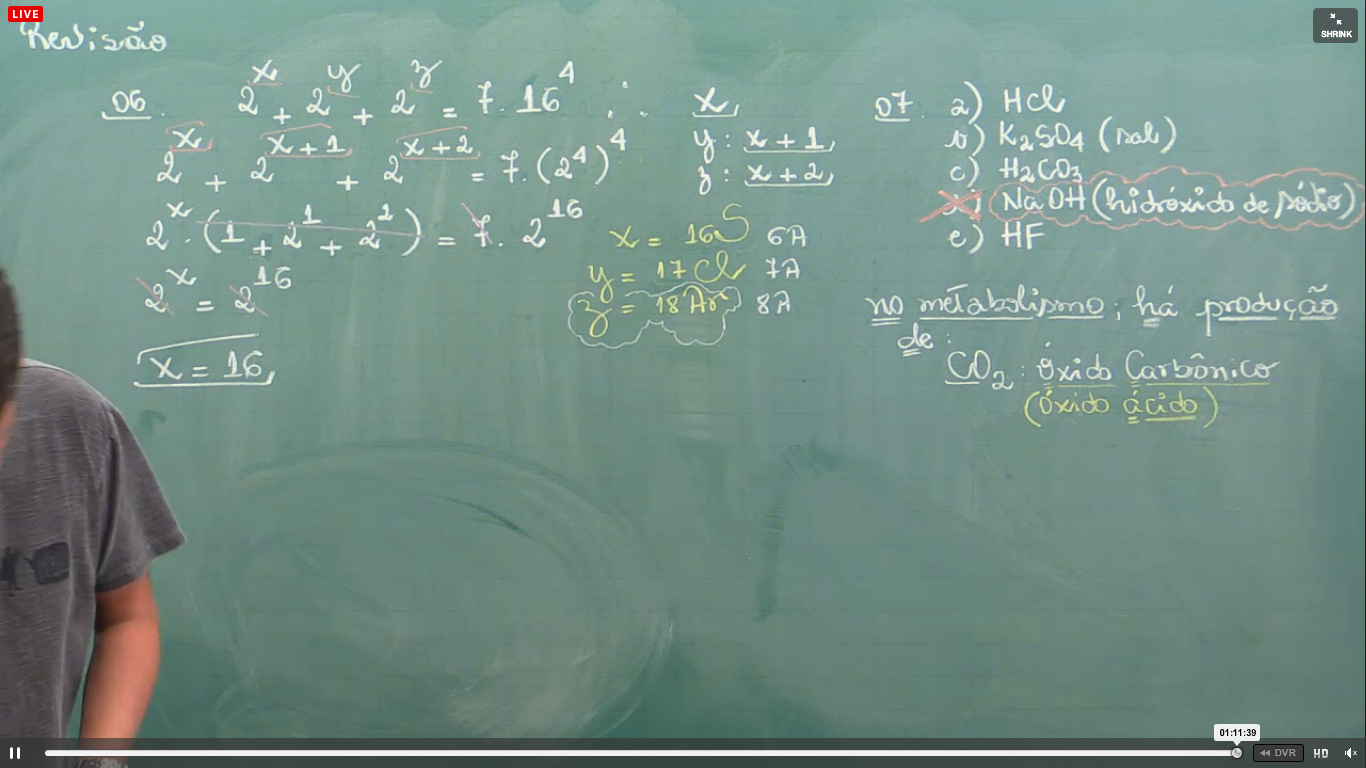 LIVE
SHRINK
Revisão
06. 2^x + 2^y + 2^z = 7.16^4 ∴ x,
2^x + 2^(x+1) + 2^(x+2) = 7.(2^4)^4 y: x+1,
z: x+2,
2^x . (1 + 2^1 + 2^2) = 7. 2^16
2^x = 2^16
x = 16,
x = 16 S 6A
y = 17 Cl 7A
z = 18 Ar 8A
07. a) HCl
b) K2SO4 (sal)
c) H2CO3
d) NaOH (hidróxido de sódio)
e) HF
no metabolismo, há produção
de:
CO2: Óxido Carbônico
(Óxido ácido)
01:11:39
DVR
HD